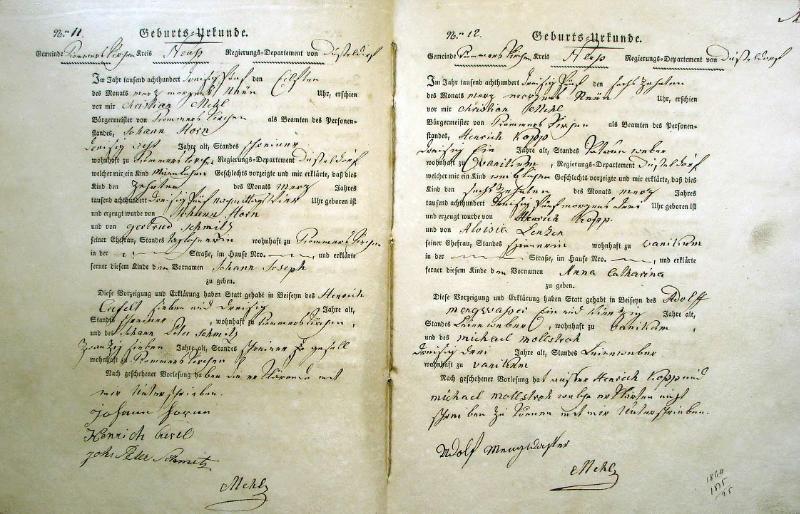 No. 11. Geburts-Urkunde.
Gemeinde Rommerskirchen Kreis Neuß Regierungs-Departement von Düsseldorf
Im Jahr tausend achthundert dreisig fünf den Eilften
des Monats merz morgens Neün Uhr, erschien
vor mir christian Mehl
Bürgermeister von Rommerskirchen als Beamten des Personen-
standes, Johann Horn
dreisig Jahre alt, Standes schreiner
wohnhaft zu Rommerskirchen, Regierungs-Departement Düsseldorf
welcher mir ein Kind männlichen Geschlechts vorzeigte und mir erklärte, daß dies
Kind den Zehnten des Monats merz Jahres
tausend achthundert dreisig fünf Uhr geboren ist
und erzeugt wurde von Johann Horn
und von gertrud schmitz
seiner Ehefrau, Standes wohnhaft zu Rommerskirchen
in der Straße, im Hause Nro. und erklärte
ferner diesem Kinde den Vornamen Johann Joseph
zu geben.
Diese Vorzeigung und Erklärung haben Statt gehabt in Beiseyn des Henrich
sieben und dreisig Jahre alt,
Standes schreiner, wohnhaft zu Rommerskirchen,
und des Johann Peter Schmitz
zwanzig sieben Jahre alt, Standes schreiner gesell
wohnhaft zu Rommerskirchen
Nach geschehener Vorlesung haben die erklärende mit
mir Unterschrieben.
Johann
Henrich
Joh: Peter Schmitz
Mehl
No. 12. Geburts-Urkunde.
Gemeinde Rommerskirchen Kreis Neuß Regierungs-Departement von Düsseldorf
Im Jahr tausend achthundert dreisig fünf den sechszehnten
des Monats merz morgens Neün Uhr, erschien
vor mir christian Mehl
Bürgermeister von Rommerskirchen als Beamten des Personen-
standes, Henrich Kopp
dreisig Ein Jahre alt, Standes weber
wohnhaft zu Vanikum, Regierungs-Departement Düsseldorf
welcher mir ein Kind weiblichen Geschlechts vorzeigte und mir erklärte, daß dies
Kind den sechszehnten des Monats merz Jahres
tausend achthundert dreisig fünf morgens drei Uhr geboren ist
und erzeugt wurde von Henrich Kopp
und von Aloisia
seiner Ehefrau, Standes spinnerin wohnhaft zu vanikum
in der Straße, im Hause Nro. und erklärte
ferner diesem Kinde den Vornamen Anna Catharina
zu geben.
Diese Vorzeigung und Erklärung haben Statt gehabt in Beiseyn des Adolf
Ein und vierzig Jahre alt,
Standes Leinenweber, wohnhaft zu vanikum,
und des michael mollstroh
dreisig drei Jahre alt, Standes Leinenweber
wohnhaft zu vanikum
Nach geschehener Vorlesung hat außer Henrich Kopp und
michael mollstroh welche erklärten nicht
schreiben zu können mit mir Unterschrieben.
Adolf
Mehl